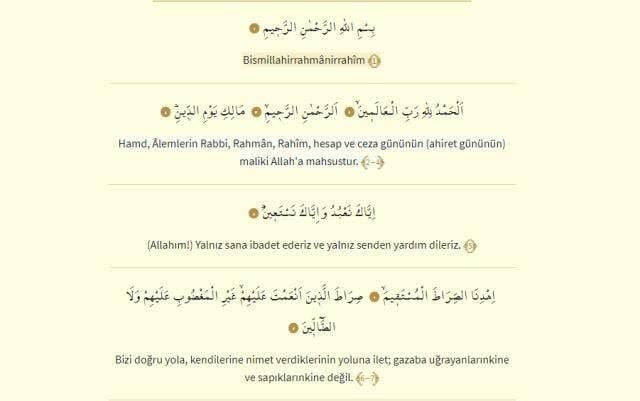 بِسْمِ اللّٰهِ الرَّحْمٰنِ الرَّح۪يمِ
Bismillahirrahmânirrahîm ﴾1﴿
اَلْحَمْدُ لِلّٰهِ رَبِّ الْعَالَم۪ينَۙ اَلرَّحْمٰنِ الرَّح۪يمِۙ مَالِكِ يَوْمِ الدّ۪ينِۜ
Hamd, Âlemlerin Rabbi, Rahmân, Rahîm, hesap ve ceza gününün (ahiret gününün)
maliki Allah'a mahsustur. ﴾2-4﴿
اِيَّاكَ نَعْبُدُ وَاِيَّاكَ نَسْتَع۪ينُۜ
(Allahım!) Yalnız sana ibadet ederiz ve yalnız senden yardım dileriz. ﴾5﴿
اِهْدِنَا الصِّرَاطَ الْمُسْتَق۪يمَۙ صِرَاطَ الَّذ۪ينَ اَنْعَمْتَ عَلَيْهِمْۙ غَيْرِ الْمَغْضُوبِ عَلَيْهِمْ وَلَا
الضَّٓالّ۪ينَ
Bizi doğru yola, kendilerine nimet verdiklerinin yoluna ilet; gazaba uğrayanlarınkine
ve sapıklarınkine değil. ﴾6-7﴿